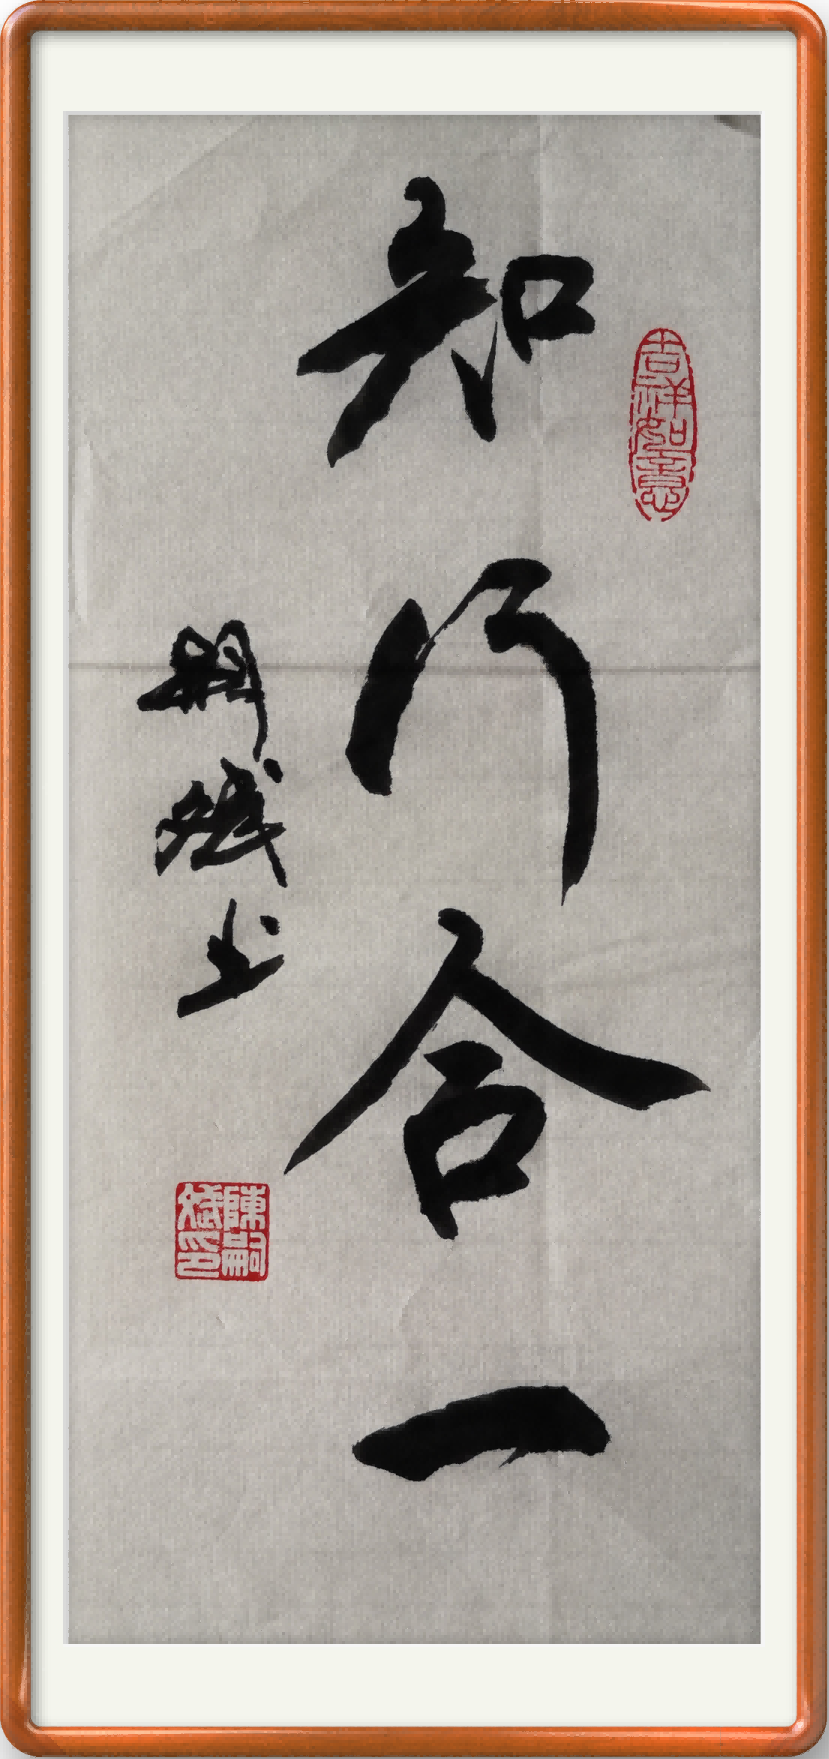 吉祥如意
知行合一
嗣斌书
陳嗣斌印